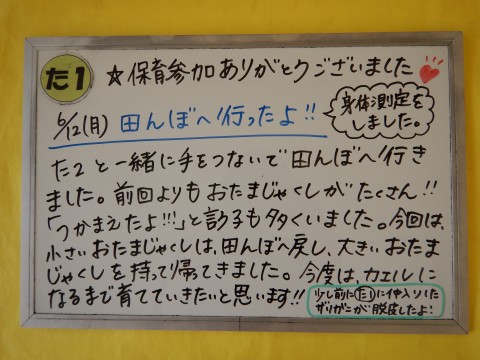 た1
☆保育参加ありがとうございました
6/12(月) 田んぼへ行ったよ!!
身体測定を
しました。
た2と一緒に手をつないで田んぼへ行き
ました。前回よりもおたまじゃくしがたくさん!!
「つかまえたよ!!」と言う子も多くいました。今回は、
小さいおたまじゃくしは、田んぼへ戻し、大きいおたま
じゃくしを持って帰ってきました。今度は、カエルに
なるまで育てていきたいと思います!!
少し前にた1に仲入りした
ザリガニが脱皮したよ!